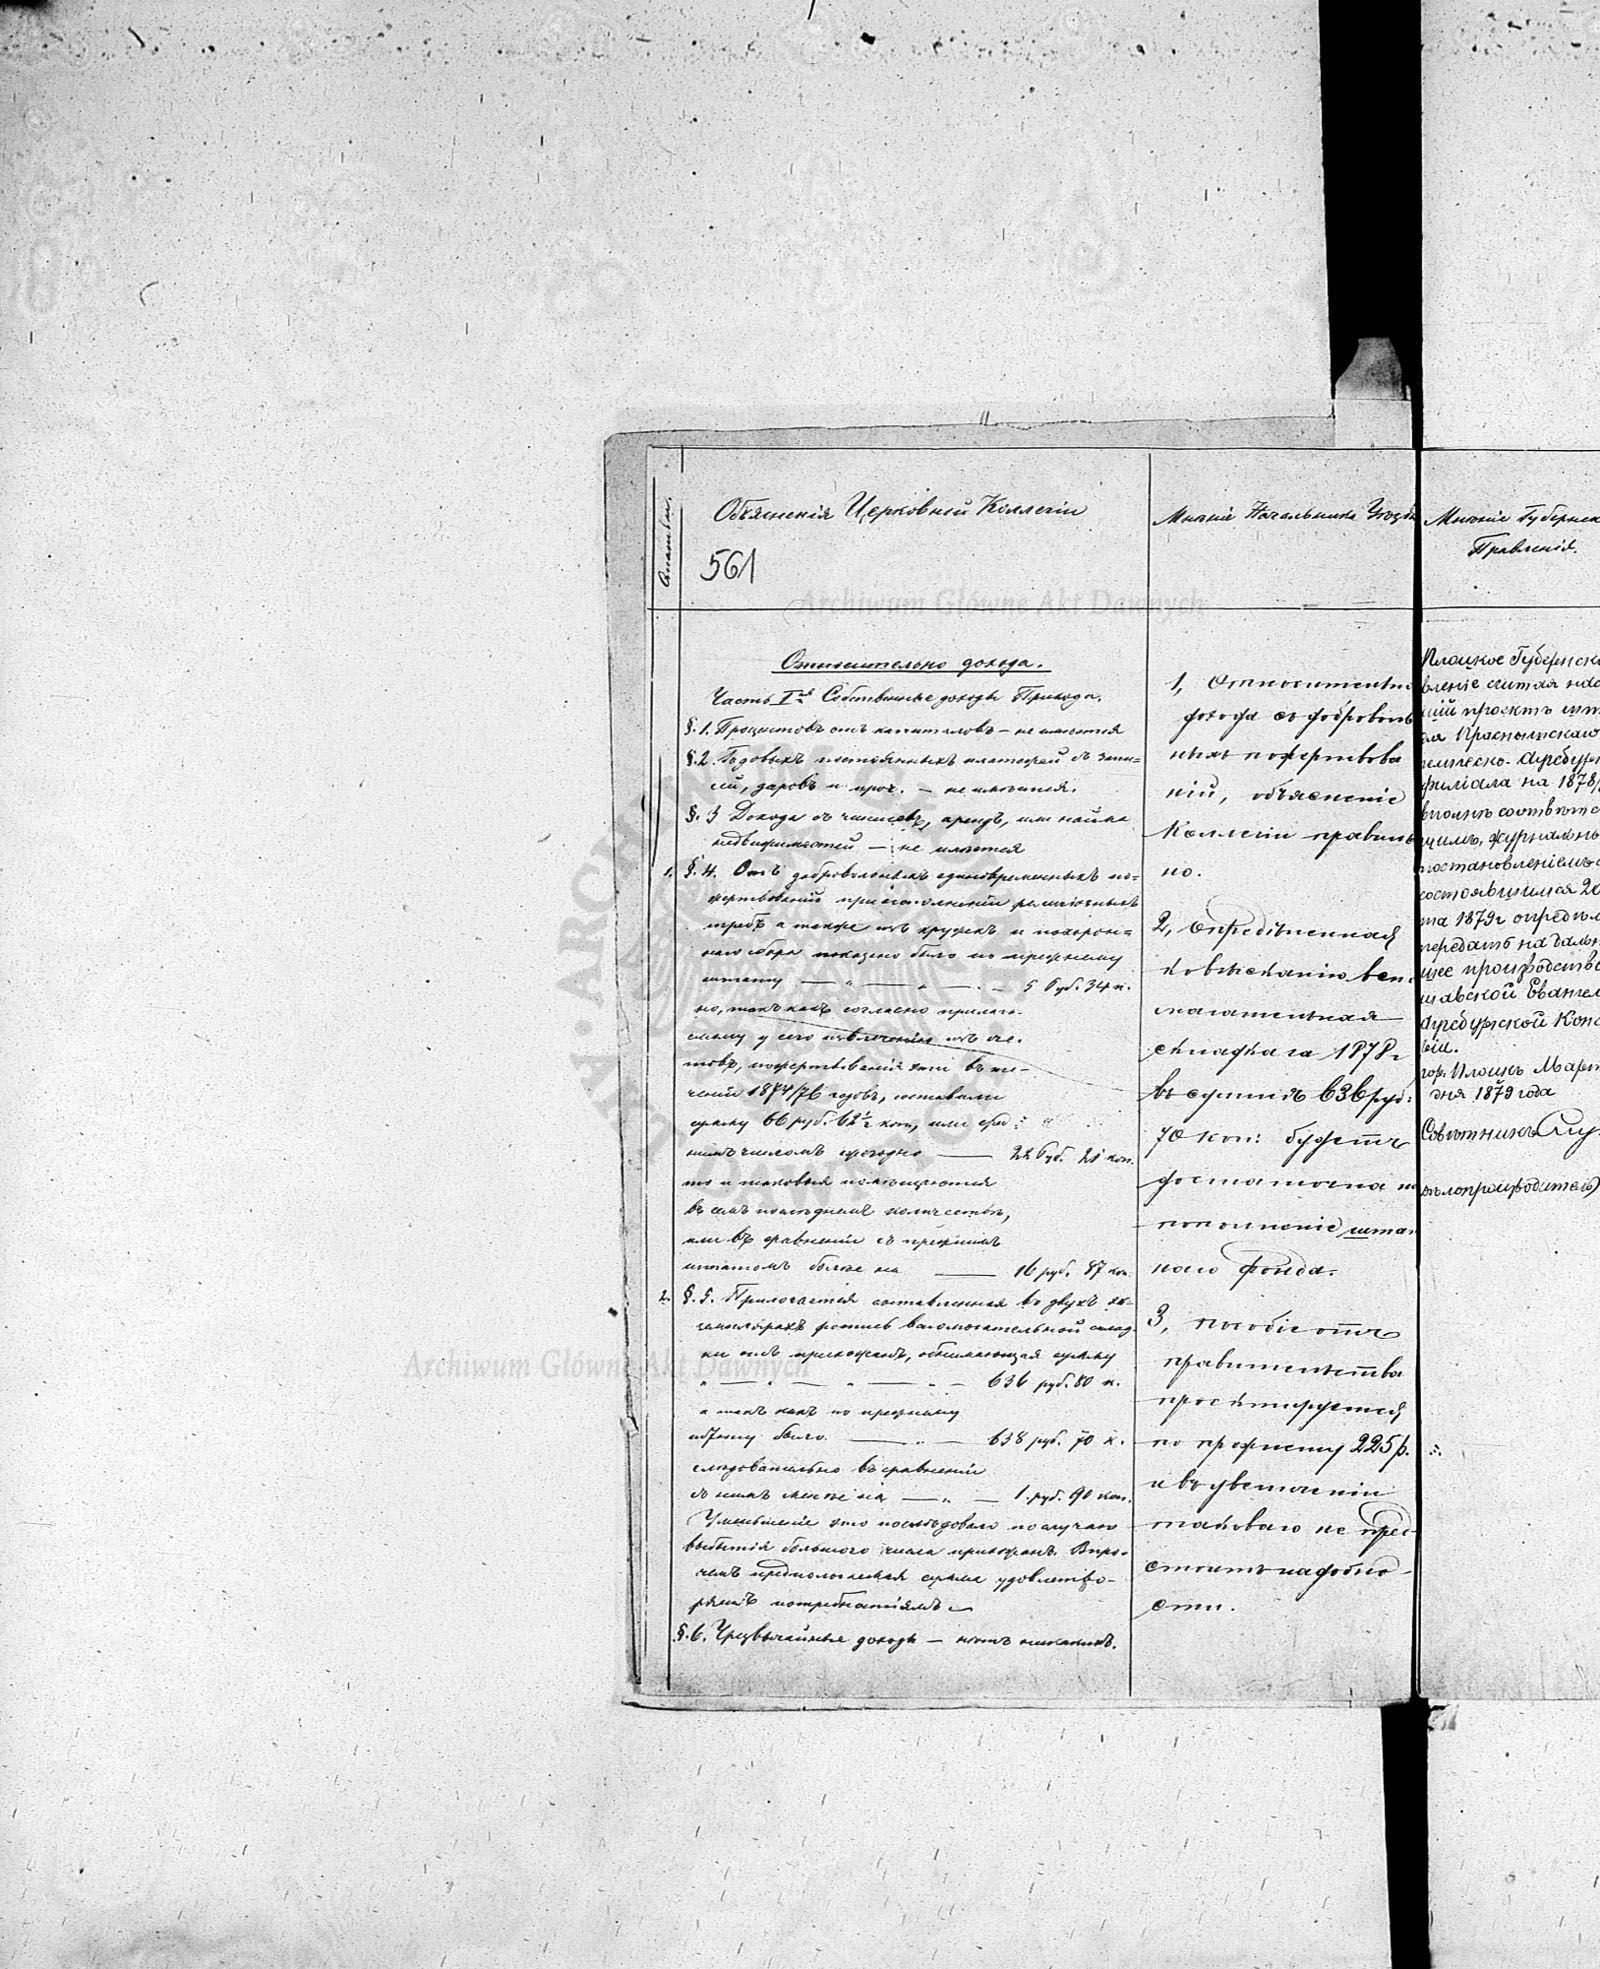 Статьи.
Объясненія Церковной Коллегіи
561
Относительно дохода.
Часть Iая Собственные доходы Прихода.
§.1. Процентовъ отъ капиталовъ – не имѣется
§.2. Годовыхъ постоянныхъ платежей съ запи=
сей, даровъ и проч. – не имѣется.
§.3 Дохода съ чиншевъ, арендъ, или найма
недвижимостей – не имѣется
1. §.4. Отъ добровольныхъ единовременныхъ по=
жертвованій при исполненіи религіозныхъ
требъ а также изъ кружекъ и похорон=
наго сбора показано было по прежнему
штату 5 руб. 34 к.
но, такъ какъ согласно прилага-
емому у сего извлеченію изъ сче-
товъ, пожертвованія эти въ те-
ченіи 1874/76 годовъ, составили
сумму 66 руб. 62½ коп, или сред=
нимъ числомъ ежегодно 22 руб. 21 коп.
то и таковыя помѣщаются
въ семъ послѣднемъ количествѣ,
или въ сравненіи съ прежнимъ
штатомъ болѣе на 16 руб. 87 коп.
2. §.5. Прилагается составленная въ двухъ эк-
земплярахъ роспись вспомогательной склад-
ки отъ прихожанъ, обнимающая сумму
636 руб. 80 к.
а такъ какъ по прежнему
штату было 638 руб. 70 к.
слѣдовательно въ сравненіи
съ нимъ менѣе на 1 руб. 90 коп.
Уменьшеніе это послѣдовало по случаю
выбытія большого числа прихожанъ. Впро-
чемъ предполагаемая сумма удовлетво-
ряетъ потребностямъ.
§.6. Чрезвычайные доходы – нѣтъ никакихъ.
Мнѣніе Начальника Уѣзда
1, Относительно
дохода съ доброволь
ныхъ пожертвова
ній, объясненіе
Коллегіи правиль
но.
2, Опредѣленная
ко взысканію вспо
магательная
складка за 1878 г
въ суммѣ 636 руб:
70 коп: будетъ
достаточна на
пополненіе штат
наго фонда.
3, пособіе отъ
правительства
проектируется
по прежнему 225 р.
и въ увеличеніи
таковаго не пред-
стоитъ надобно-
сти.
Мнѣніе Губернск
Правленія.
Плоцкое Губернско
вленіе считая нас
щій проэктъ шт
для Праснышскаго
гелическо-Аугсбург
филіала на 1878/
вполнѣ соотвѣтс
щимъ, журнальн
постановленіемъ
состоявшимся 2
та 1879 г опредѣл
передать на даль
шее производство
шавской Евангел
Аугсбургской Конс
ріи.
гор. Плоцкъ Март
дня 1879 года
Совѣтникъ
дѣлопроизводитель
Archiwum Główne Akt Dawnych
Archiwum Główne Akt Dawnych